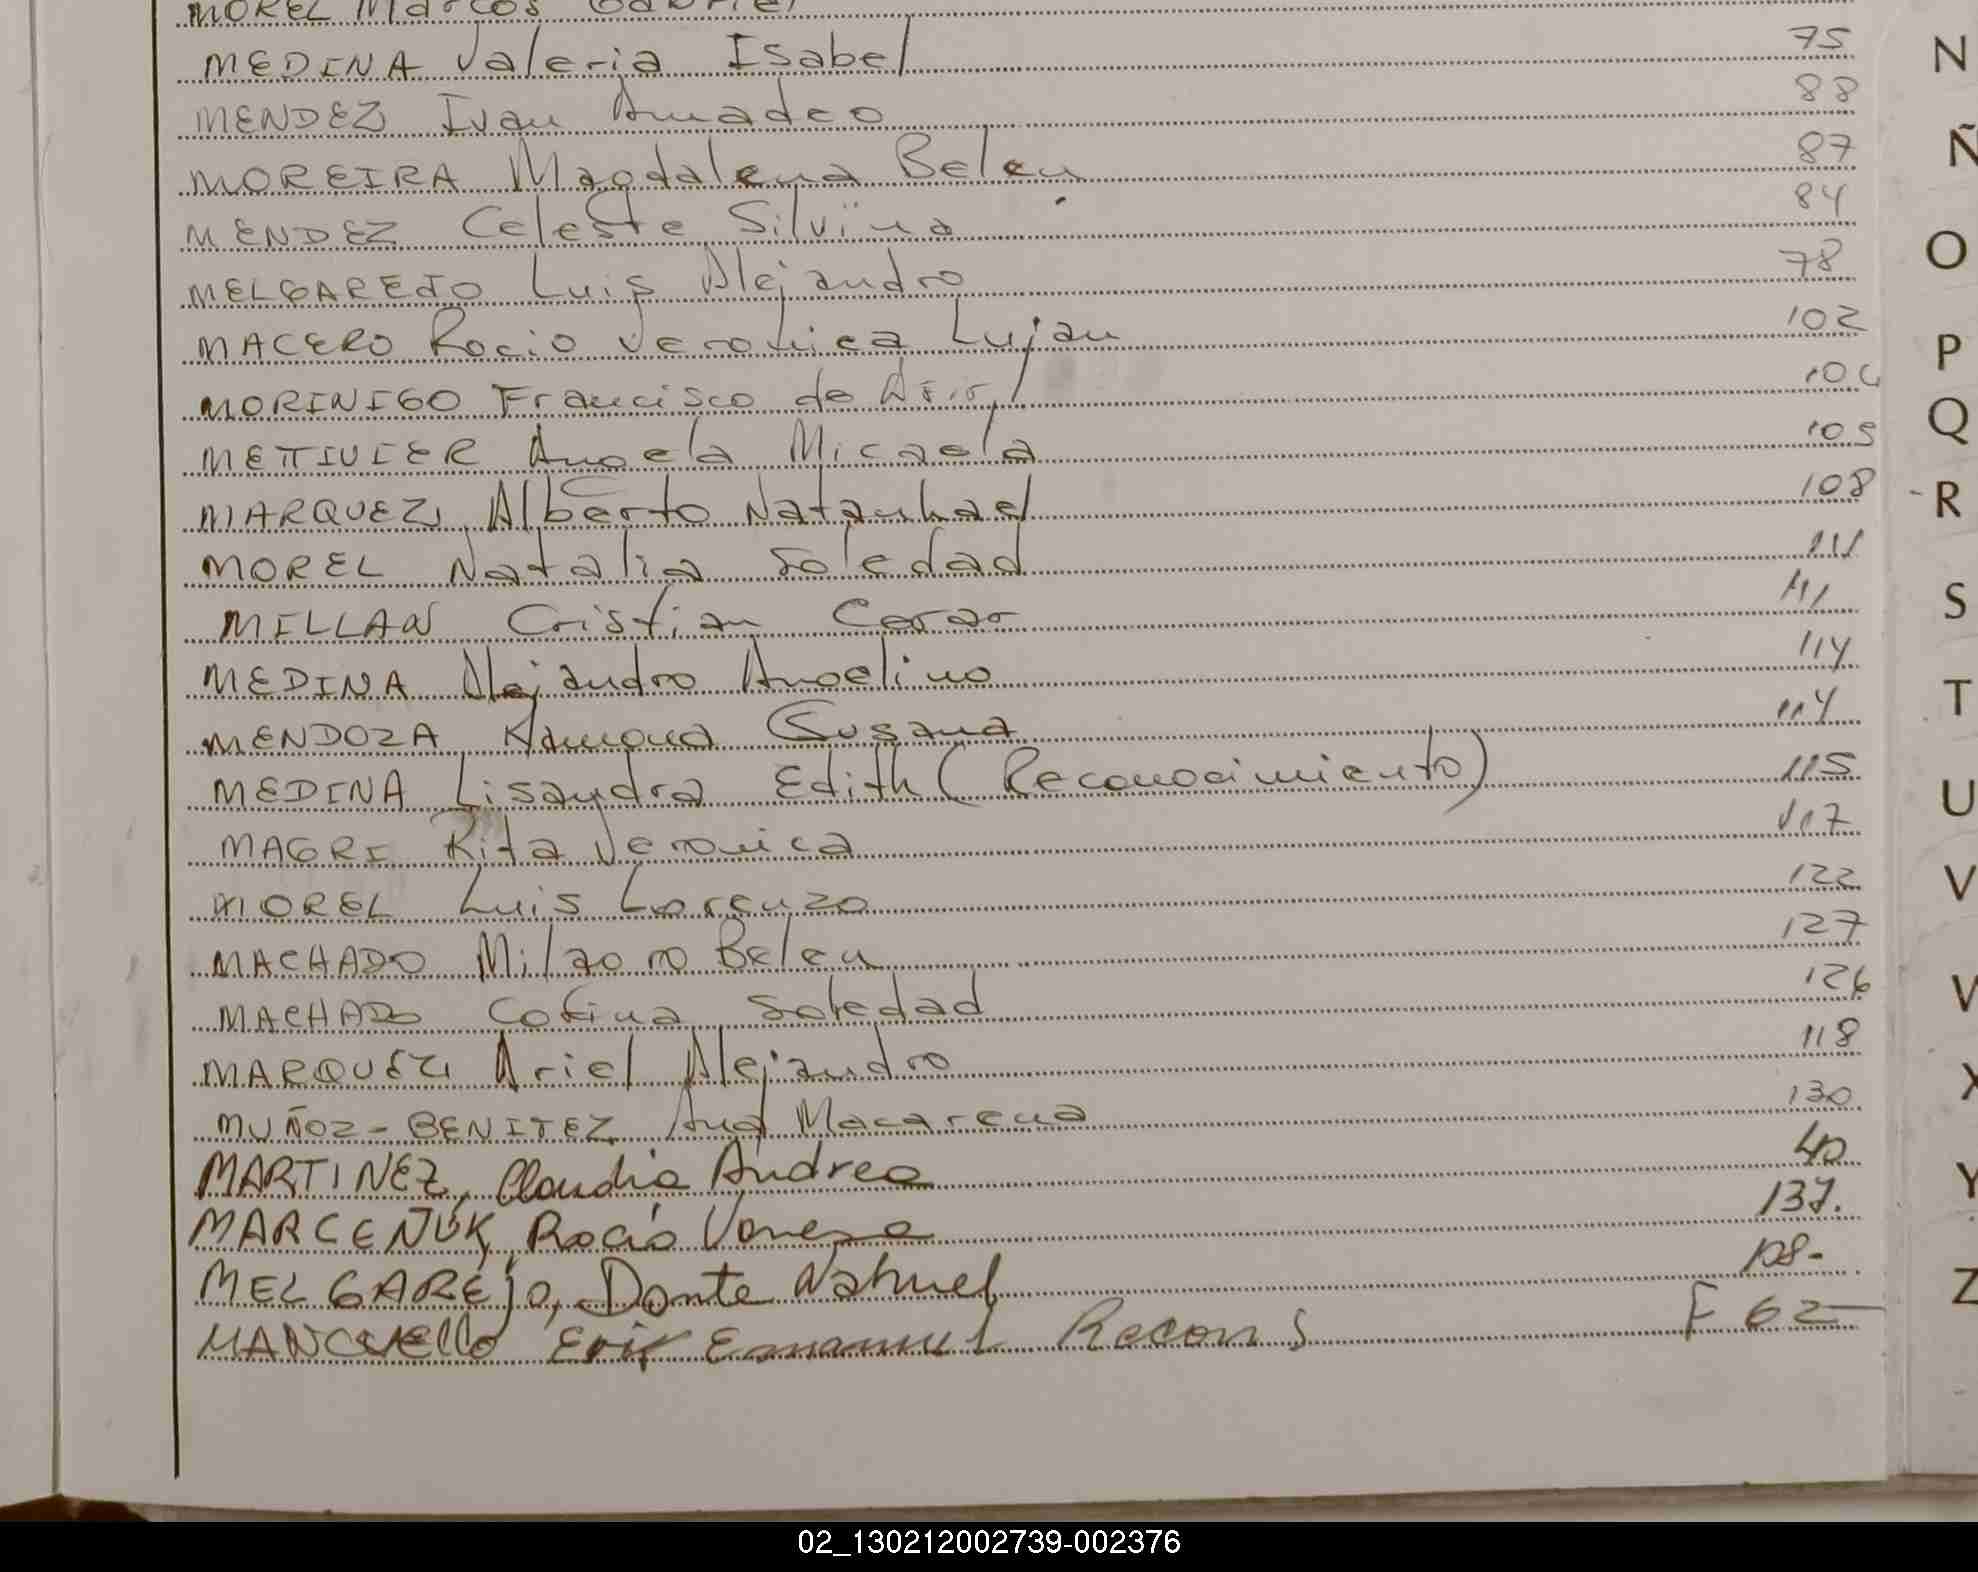 MOREL Marcos Gabriel
MEDINA Valeria Isabel 75
MENDEZ Ivan Amadeo 88
MOREIRA Magdalena Belen 87
MENDEZ Celeste Silvina 84
MELGAREJO Luis Alejandro 78
MACERO Rocio Veronica Lujan 102
MORINIGO Francisco de
METTIVIER Angela Micaela 105
MARQUEZ Alberto Natanhael 108
MOREL Natalia Soledad 111
MILLAN Cristian Cesar 111
MEDINA Alejandro Angelino 114
MENDOZA Ramona Susana 114
MEDINA Lisandra Edith (Reconocimiento) 115
MAGRI Rita Veronica 117
MOREL Luis Lorenzo 122
MACHADO Milagro Belen 127
MACHADO Soledad 126
MARQUEZ Ariel Alejandro 118
MUÑOZ-BENITEZ Ana Macarena 130
MARTINEZ, Claudia Andrea 40
MARCENIUK, Rocío Vanesa 137.
MELGAREjo, Dante Nahuel 108-
MANCUELLO Erik Emanuel Recon S F 62
N
Ñ
O
P
Q
R
S
T
U
V
X
Y
Z
02_130212002739-002376